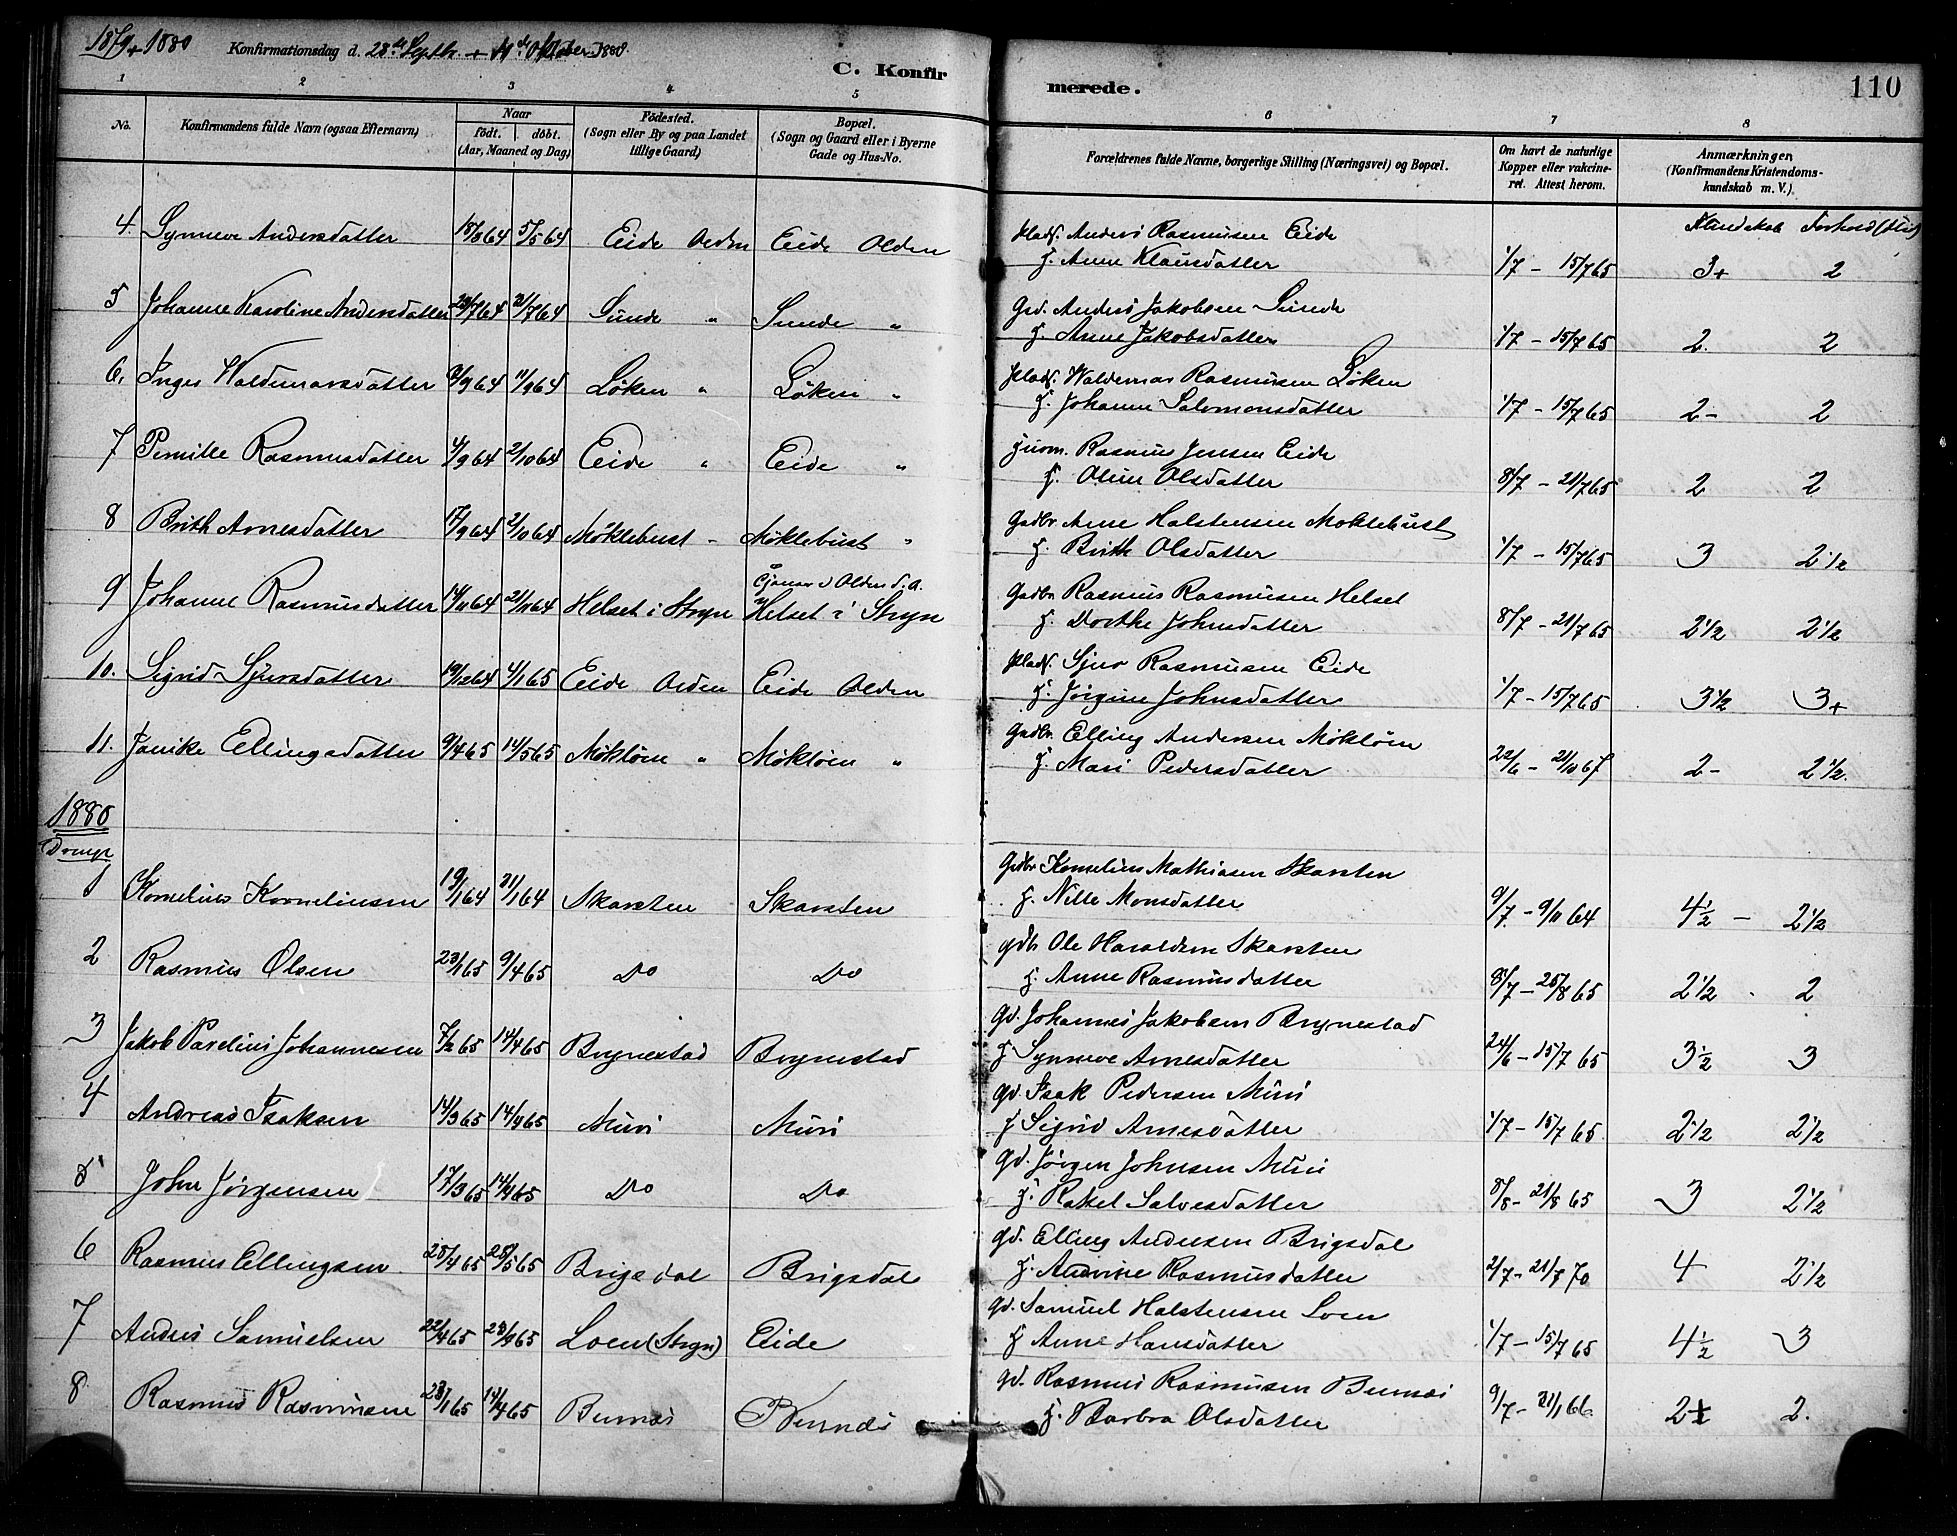 1879 + 1880 Konfirmationsdag d. 28de Septbr. + Oktober 1880. C. Konfirmerede. 110
1 2 3 4 5 6 7 8
No. Konfirmandens fulde Navn (ogsaa Efternavn) Naar födt. döbt. (Aar, Maaned og Dag) Födested. (Sogn eller By og paa Landet tillige Gaard) Bopæl. (Sogn og Gaard eller i Byerne Gade og Hus-No. Forældrenes fulde Navne, borgerlige Stilling (Næringsvei) og Bopæl. Om havt de naturlige Kopper eller vakcineret. Attest herom. Anmærkninger (Konfirmandens Kristendomskundskab m. V.)
Kundskab Forhold (Flid)
4. Synneve Andersdatter 18/3 64 5/5 64 Eide Olden Eide Olden plads. Anders Rasmusen Eide
H. Anne Klausdatter 1/7 - 15/7 65 3+ 2
5 Johanne Karoline Andersdatter 23/7 64 31/7 64 Sunde " Sunde " Gd. Anders Jakobsen Sunde
H. Anne Jakobsdatter 1/7 - 15/7 65 2. 2
6. Inger Waldemarsdatter 2/9 64 11/9 64 Løken " Løken " plads. Waldemar Rasmusen Løken
H. Johanne Salomonsdatter 1/7 - 15/7 65 2- 2
7 Pernille Rasmusdatter 4/9 64 2/10 64 Eide " Eide " Rasmus Jensen Eide
H. Oline Olsdatter 8/7 - 21/7 65 2 2
8 Brith Arnesdatter 17/9 64 2/10 64 Møklebust - Møklebust " Gadbr Arne Halstensen Moklebust
H. Brith Olsdatter 1/7 - 15/7 65 3 2 1/2
9 Johanne Rasmusdatter 14/11 64 21/11 64 Helset i Stryn Tjener i Olden d. a. Helset i Stryn Gadbr Rasmus Rasmusen Helset
H. Dorthe Johnsdatter 8/7 - 21/7 65 2 1/2 2 1/2
10. Sigrid Sjursdatter 19/12 64 1/1 65 Eide Olden Eide Olden plads. Sjur Rasmusen Eide
H. Jørgine Johnsdatter 1/7 - 15/7 65 3 1/2 3+
11. Janike Ellingsdatter 9/4 65 14/5 65 Møkløin " Møkløin " Gadbr. Elling Andersen Møkløin
H. Mari Pedersdatter 22/6 - 21/10 67 2- 2 1/2.
1880
Drenge
1 Kornelius Korneliusen 19/1 64 31/1 64 Skarsten Skarsten Gadbr Kornelius Mathiasen Skarsten
H. Nille Monsdatter 9/7 - 9/11 64 4 1/2 - 2 1/2
2 Rasmus Olsen 23/1 65 9/4 65 Do Do gdb. Ole Haraldsen Skarsten
H. Anne Rasmusdatter 8/7 - 25/8 65 2 1/2 . 2
3 Jakob Parelius Johannesen 7/2 65 14/4 65 Brynestad Brynestad Gd. Johannes Jakobsen Brynestad
H Synneve Arnesdatter 24/6 - 15/7 65 3 1/2 3
4 Andreas Isaksen 14/3 65 14/4 65 Muri Muri gd. Isak Pedersen Muri
H Sigrid Arnesdatter 1/7 - 15/7 65. 2 1/2 2 1/2
5 John Jørgensen 17/3 65 14/4 65 Do Do gd. Jørgen Johnsen Muri
H. Rakel Salvesdatter 8/8 - 21/8 65 3 2 1/2
6 Rasmus Ellingsen. 25/4 65 28/5 65 Brigsdal Brigsdal gd. Elling Andersen Brigsdal
H. Rasmusdatter 2/7 - 21/7 70 4 2 1/2
7 Anders Samuelsen 22/4 65 23/4 65 Loen (Stryn) Eide gd. Samuel Halstensen Loen
H Anne Hansdatter 1/7 - 15/7 65 4 1/2 3
8 Rasmus Rasmusen 23/1 65 14/4 65 Beinnæs Beinnæs gd. Rasmus Rasmusen Beinnæs
H. Barbra Olsdatter 9/7 - 31/1 66 2 1/2 2.